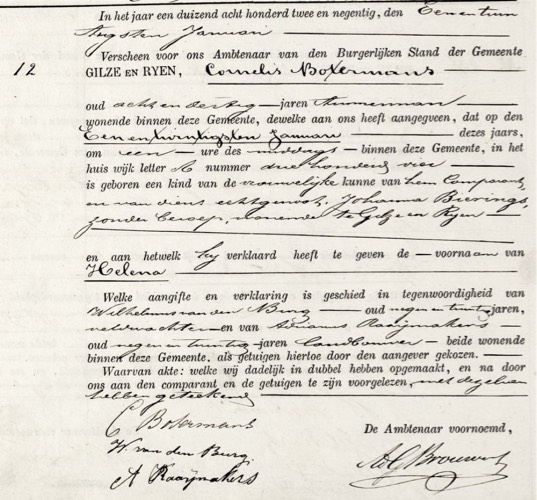 In het jaar een duizend acht honderd twee en negentig, den Eenentwin
tigsten Januari
Verscheen voor ons Ambtenaar van den Burgerlijken Stand der Gemeente
12 GILZE EN RYEN, Cornelis Botermans
oud acht en dertig jaren timmerman
wonende binnen deze Gemeente, dewelke aan ons heeft aangegeven, dat op den
Een en twintigsten Januari dezes jaars,
om een ure des middags binnen deze Gemeente, in het
huis wijk letter A nummer driehonderd vier
is geboren een kind van de vrouwelijke kunne van hem Comparant,
en van diens echtgenoot, Johanna Bierings,
zonder beroep, wonende te Gilze en Ryen
en aan hetwelk hij verklaard heeft te geven de voornaam van
Helena
Welke aangifte en verklaring is geschied in tegenwoordigheid van
Wilhelmus van den Burg oud negen en twintig jaren,
veldwachter en van Adrianus Raaijmakers
oud negen en twintig jaren landbouwer beide wonende
binnen deze Gemeente, als getuigen hiertoe door den aangever gekozen.
Waarvan akte: welke wij dadelijk in dubbel hebben opgemaakt, en na door
ons aan den comparant en de getuigen te zijn voorgelezen, met degelven
hebben geteekend
C Botermans
De Ambtenaar voornoemd,
W. van den Burg
A Raaijmakers
Brouwers